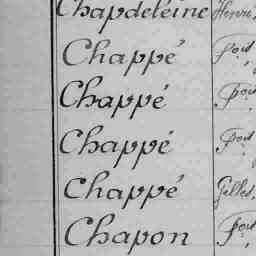 Chapdeleine Henri,
Chappé
Chappé
Chappé
Chappé Gilles,
Chapon